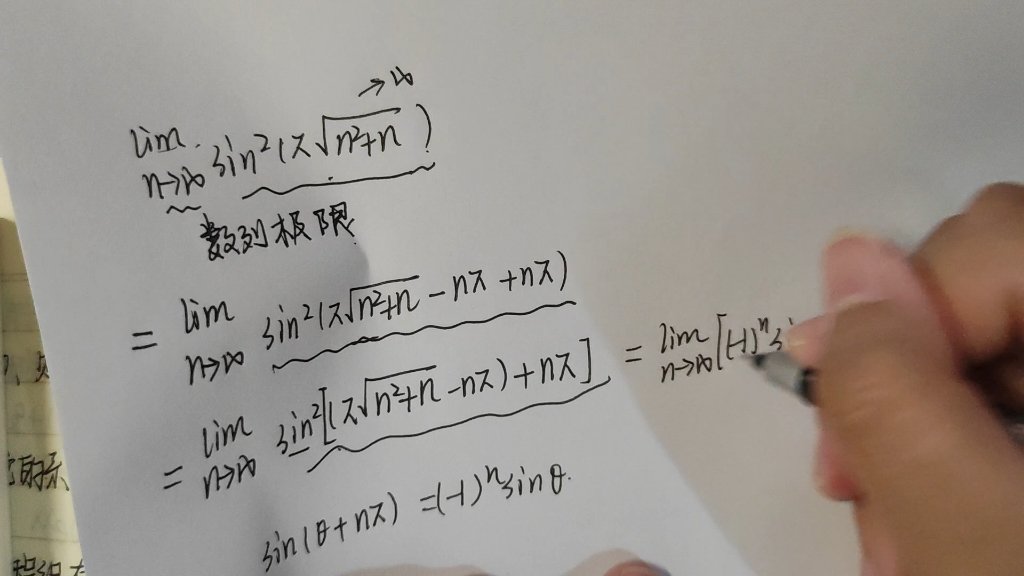 →∞
lim sin²(π√(n²+n))
n→∞
数列极限
= lim sin²(π√(n²+n) - nπ + nπ)
n→∞
= lim sin²[(π√(n²+n) - nπ) + nπ] = lim [(-1)ⁿ
n→∞ n→∞
sin(θ+nπ) = (-1)ⁿ sinθ.